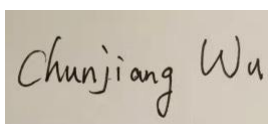 Chunjiang Wu